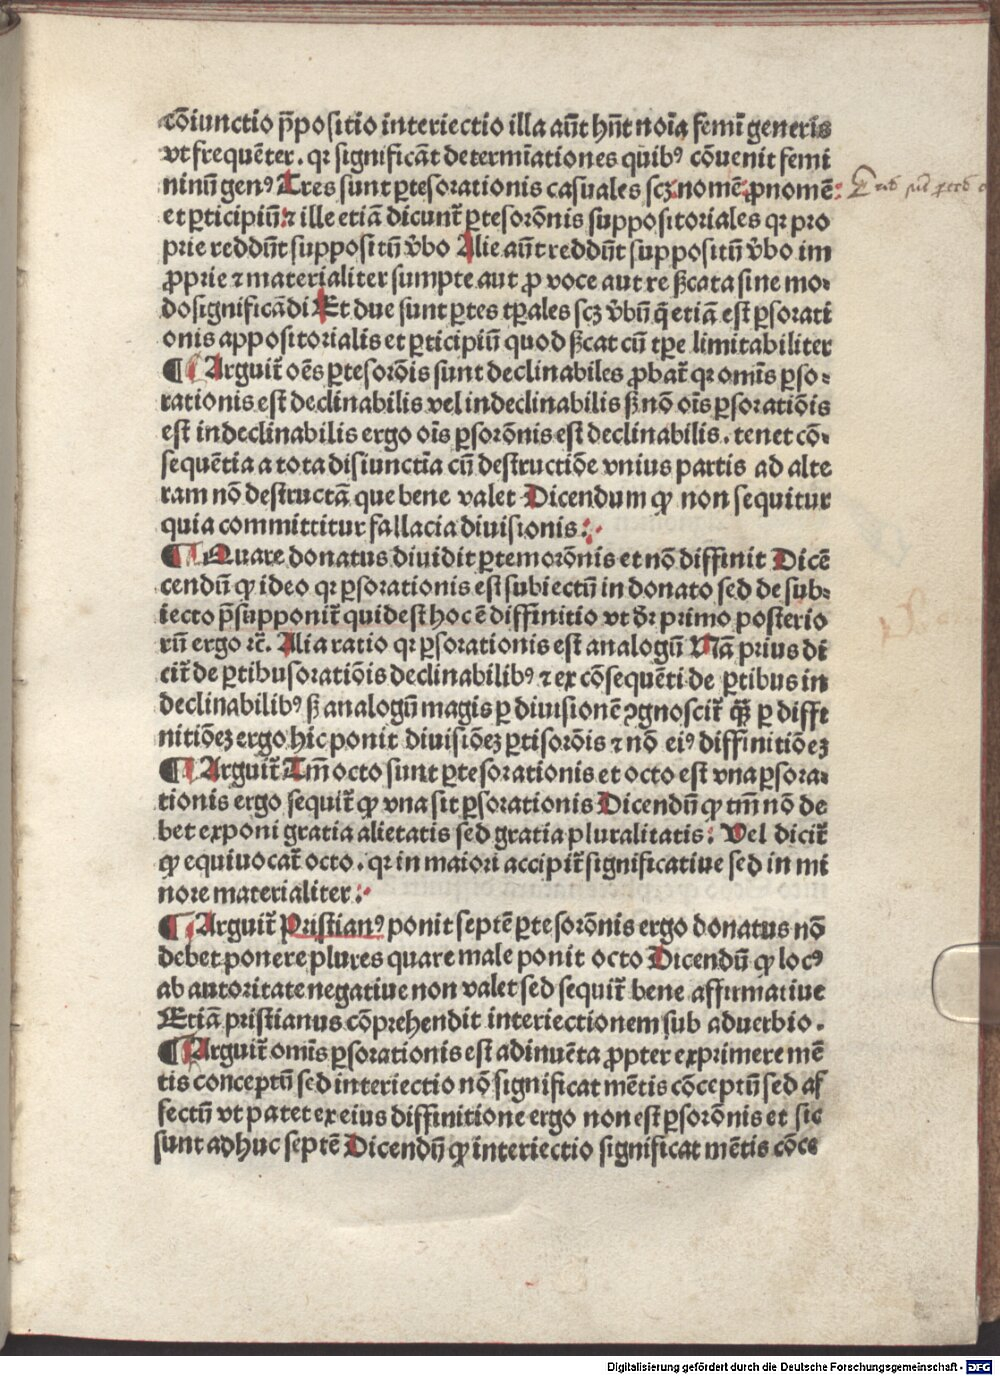 cōiunctio p̄positio interiectio illa aūt hn̄t noīa femī generis
vt frequēter . qꝛ significāt determīationes quibꝰ cōuenit femi
ninū genꝰ Tres sunt ꝑtes orationis casuales scꝫ nomē ꝓnomē:
et ꝑticipiū: ⁊ ille etiā dicunt̄ ꝑtes orōnis suppositoriales qꝛ pro
prie reddūt suppositū v̄bo Alie aūt reddūt suppositū v̄bo im
ꝓprie ⁊ materialiter sumpte aut ꝓ voce aut re ꝓ̄cata sine mo⸗
do significādi Et due sunt ꝑtes tꝑales scꝫ v̄bū q̄ etiā est ꝑs orati
onis appositorialis et ꝑticipiū quod ß̄cat cū tꝑe limitabiliter
¶ Arguit̄ oēs ꝑtes orōis sunt declinabiles ꝓbat̄ qꝛ omīs ꝑs o⸗
rationis est declinabilis vel indeclinabilis ß nō oīs ꝑs oratiōis
est indeclinabilis ergo oīs ꝑs orōnis est declinabilis . tenet cō⸗
sequētia a tota disiunctīa cū destructiōe vnius partis ad alte
ram nō destructā que bene valet Dicendum ꝙ non sequitur
quia committitur fallacia diuisionis :⸗
¶ Quare donatus diuidit ꝑtem orōnis et nō diffinit Dicē
cendū ꝙ ideo qꝛ ꝑs orationis est subiectū in donato sed de sub⸗
iecto p̄supponit̄ quid est hoc ē diffinitio vt dꝛ̄ primo posterio
rū ergo ⁊c̄. Alia ratio qꝛ ꝑs orationis est analogū Nā prius di
cit̄ de ꝑtibus oratiōis declinabilibꝰ ⁊ ex cōsequēti de ꝑtibus in
declinabilibꝰ ß analogū magis ꝑ diuisionē ꝯgnoscit̄ qꝫ̄ ꝑ diffi
nitiōeꝫ ergo hic ponit diuisiōeꝫ ꝑtis orōis ⁊ nō eiꝰ diffinitiōeꝫ
¶ Arguit̄ Tm̄ octo sunt ꝑtes orationis et octo est vna ꝑs ora⸗
tionis ergo sequit̄ ꝙ vna sit ꝑs orationis Dicendū ꝙ tm̄ nō de
bet exponi gratia alietatis sed gratia pluralitatis: Vel dicit̄
ꝙ equiuocat̄ octo . qꝛ in maiori accipit̄ significatiue sed in mi
nore materialiter :⸗
¶ Arguit̄ Pristianꝰ ponit septē ꝑtes orōnis ergo donatus nō
debet ponere plures quare male ponit octo Dicendū ꝙ locꝰ
ab autoritate negatiue non valet sed sequit̄ bene affirmatiue
Etiā pristianus cōprehendit interiectionem sub aduerbio .
¶ Arguit̄ omīs ꝑs orationis est adinuēta ꝓpter exprimere mē
tis conceptū sed interiectio nō significat mētis cōceptū sed af
fectū vt patet ex eius diffinitione ergo non est ꝑs orōnis et sic
sunt adhuc septē Dicendū ꝙ interiectio significat mētis cōce
Digitalisierung gefördert durch die Deutsche Forschungsgemeinschaft - DFG